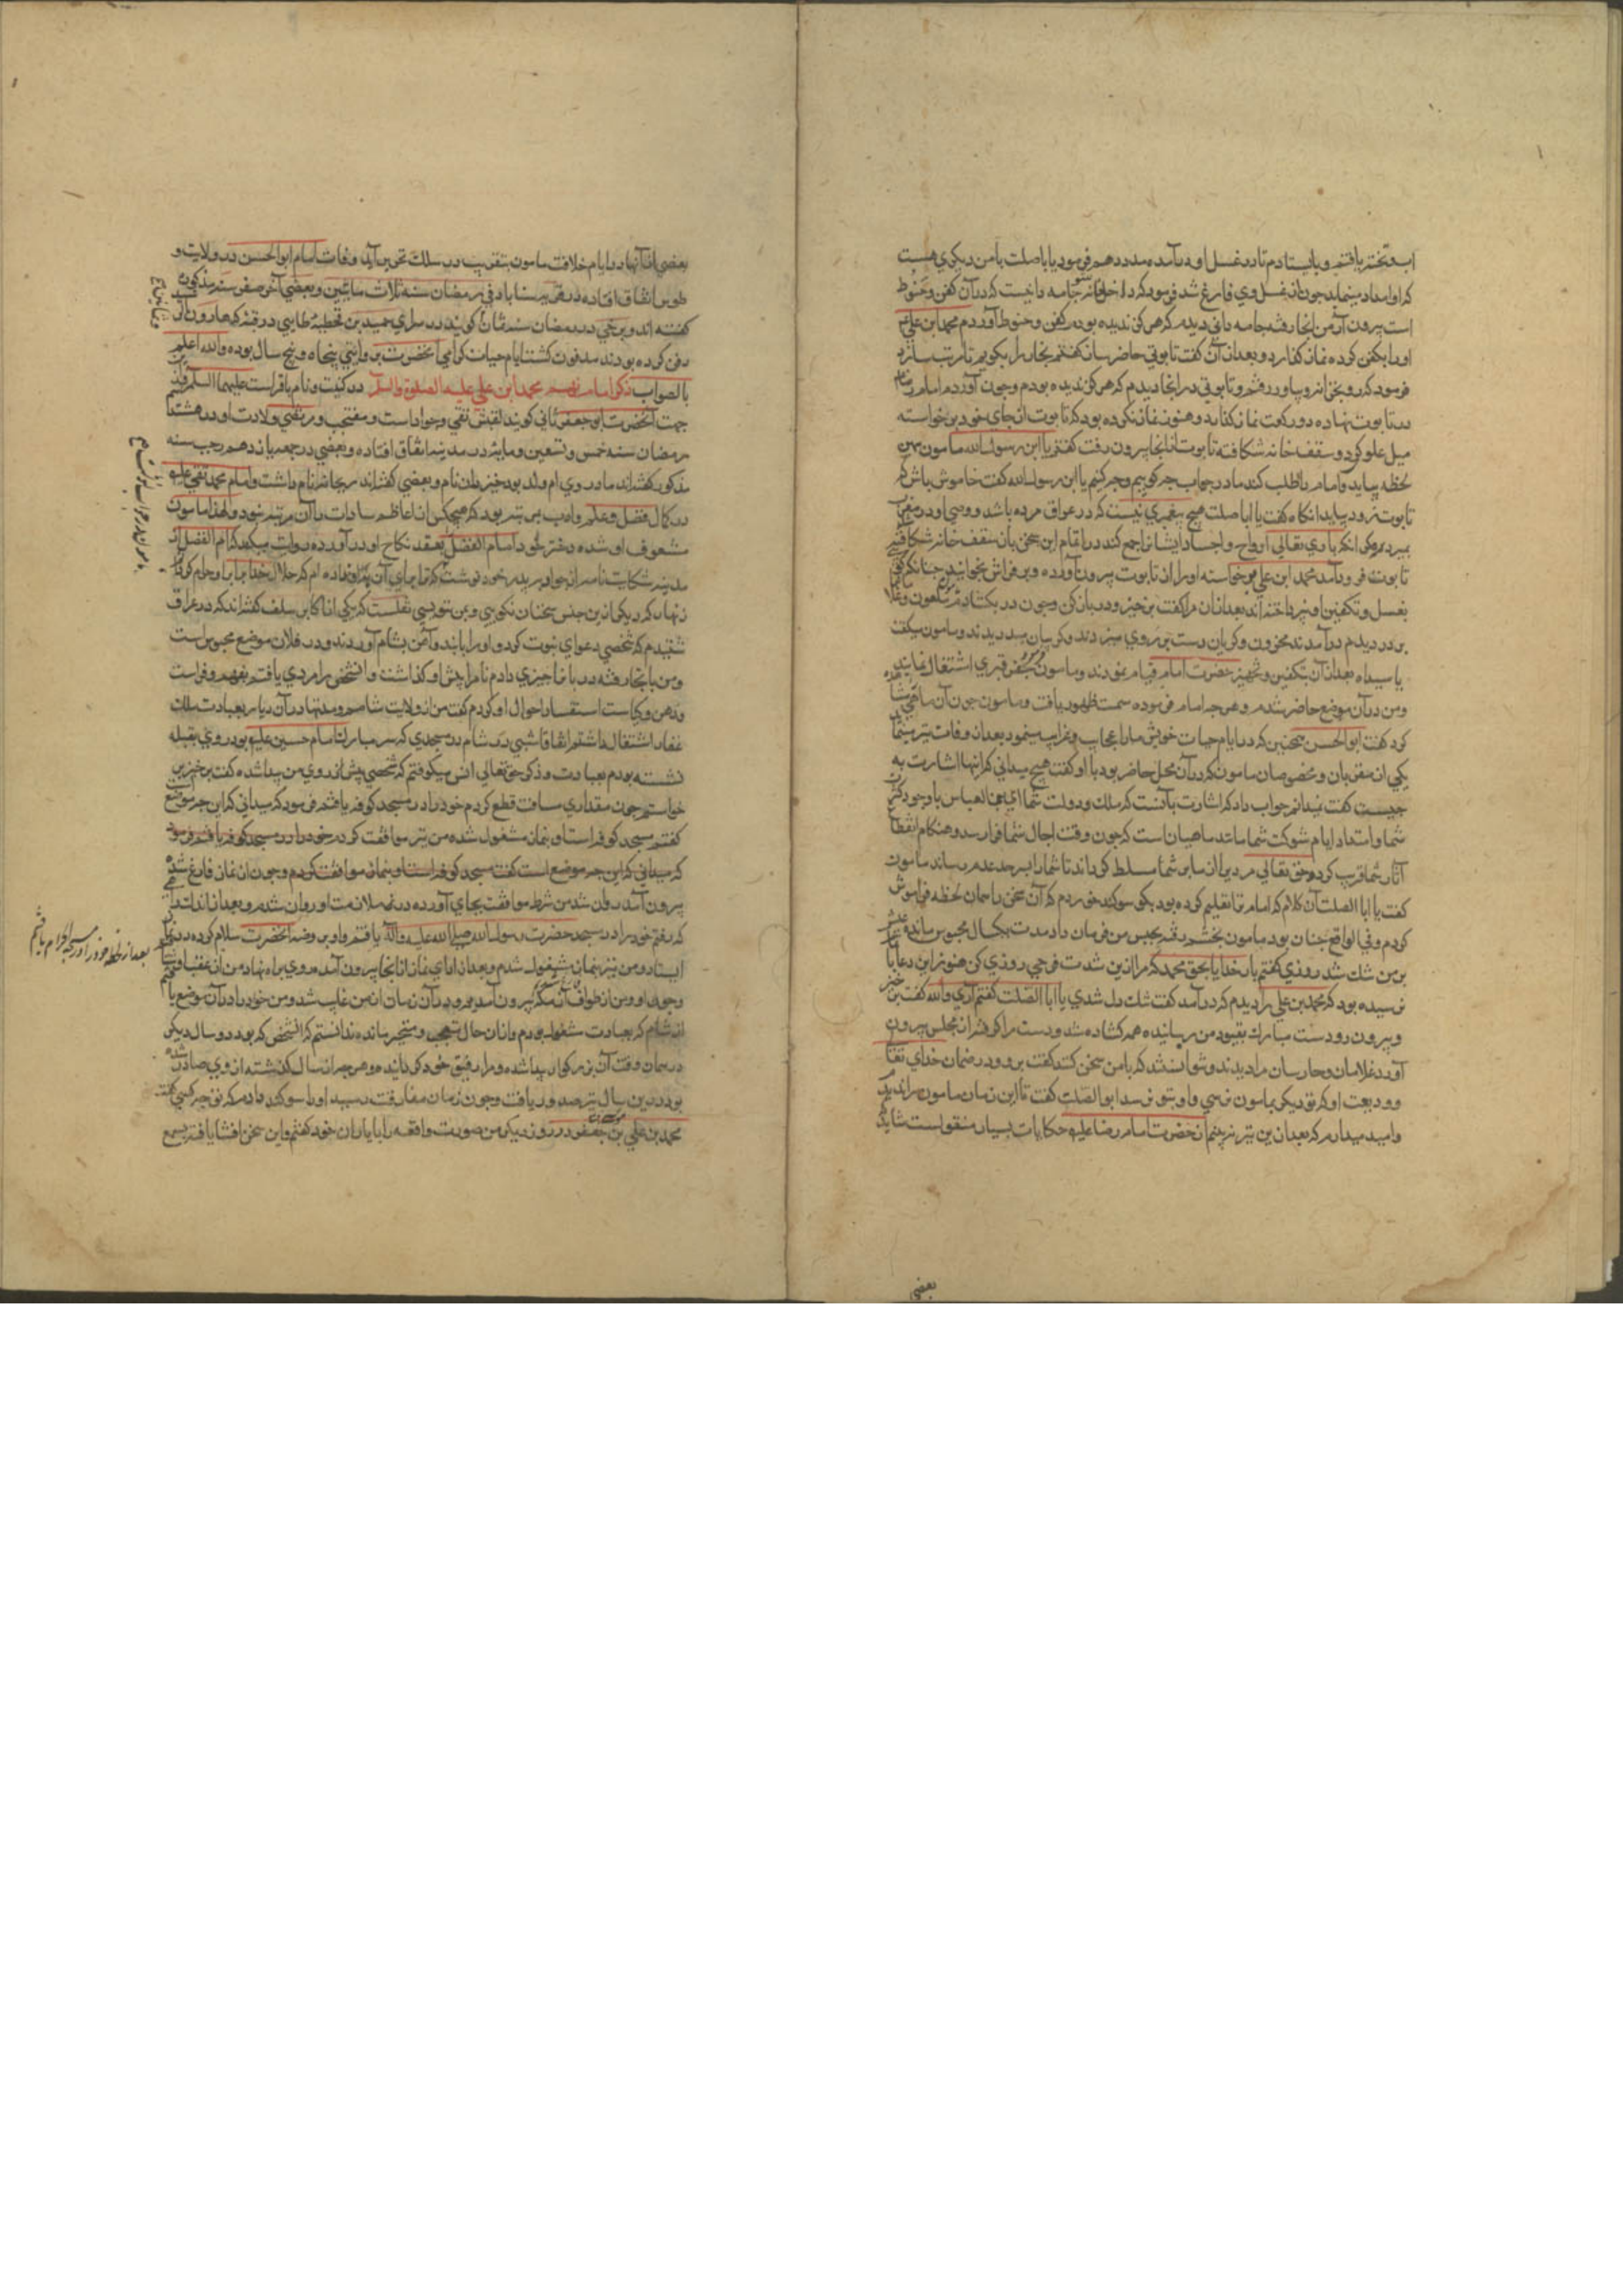 آب و تخته یافتم و بایستادم تا در غسل او در آمده مدد دهم فرمود یا ابا صلت با من دیگری هست
که او امداد مینماید چون از غسل وی فارغ شد فرمود که در خانه جامه دانیست که در آن کفن و حنوط
است بیرون آر من آنجا رفته جامه دانی دیدم که هرگز ندیده بودم کفن و حنوط آوردم محمد ابن علی
او را بکفن کرده نماز گذارد و بعد از آن گفت تابوتی حاضر ساز گفتم نجار را بگویم تا ترتیب سازد
فرمود که رو بخزانه و بیاور رفتم و تابوتی در آنجا دیدم که هرگز ندیده بودم و چون آوردم امام را
در تابوت نهاده دو رکعت نماز گذارد و هنوز نماز نکرده بود که تابوت از جای خود برخواسته
میل علو کرد و سقف خانه شکافته تابوت از آنجا بیرون رفت گفتم یا ابن رسول الله مامون همین
لحظه بیاید و امام را طلب کند ما در جواب چه گوییم و چه کنیم یا ابن رسول الله گفت خاموش باش که
تابوت زود بیاید آنگاه گفت یا ابا صلت هیچ پیغمبری نیست که در عراق مرده باشد و وصی او در مغرب
بمیرد مگر آنکه باری تعالی ارواح و اجساد ایشانرا جمع کند در اتمام این سخن باز سقف خانه شکافته
تابوت فرود آمد محمد ابن علی برخواسته او را از تابوت بیرون آورده و بر فراش بخوابانید چنانکه گویی
بغسل و تکفین او نپرداخته اند بعد از آن مرا گفت برخیز و در باز کن و چون در بگشادم مامون و غلامان
بر در دیدم در آمدند محزون و گریان دست بر روی میزدند و گریبان میدریدند و مامون میگفت
یا سیداه بعد از آن بتکفین و تجهیز حضرت امام قیام نمودند و مامون بحفر قبری اشتغال نمایند
و من در آن موضع حاضر شدم و هر چه امام فرموده سمت ظهور یافت و مامون چون آن ماهی مشاهده
کرد گفت ابوالحسن همچنین که در ایام حیات خویش ما را عجایب و غرایب مینمود بعد از وفات نیز مینماید
یکی از مقربان و مخصوصان مامون که در آن محل حاضر بود با او گفت هیچ میدانی که اینها اشارت به
چیست گفت نمیدانم جواب داد که اشارت بآنست که ملک و دولت شما ای بنی العباس با وجود کثرت
شما و امتداد ایام شوکت شما مانند ماهیان است که چون وقت آجال شما فرا رسد و هنگام انقطاع
آثار شما قریب گردد حق تعالی مردی از ما بر شما مسلط گرداند تا شما را بسر حد عدم رساند مامون
گفت یا ابا الصلت آن کلام که امام ترا تعلیم کرده بود بگو سوگند خوردم که آن سخن را همان لحظه فراموش
کردم و فی الواقع چنان بود مامون بحبس من فرمان داد مدت یکسال محبوس مانده عیش
بر من تنگ شد روزی گفتم بار خدایا بحق محمد که مرا ازین شدت فرجی روزی کن هنوز این دعا بآخر
نرسیده بود که محمد بن علی را دیدم که در آمد گفت تنگ دل شدی یا ابا الصلت گفتم آری والله گفت برخیز
و بیرون رو دست مبارک بقیود من رسانیده همه گشاده شد و دست مرا گرفته از مجلس بیرون
آورد غلامان و حارسان مرا دیدند و نتوانستند که با من سخن کنند گفت برو در ضمان خدای تعالی
و ودیعت او که تو دیگر بمامون نرسی و او بتو نرسد ابوالصلت گفت تا این زمان مامون مرا ندید
و امید میدارم که بعد ازین نیز نبینم از حضرت امام رضا علیه حکایات بسیار منقولست شاید که
بعضی
بعضی از آنها در ایام خلافت مامون بتقریب در سلک تحریر آید وفات امام ابوالحسن در ولایت
طوس اتفاق افتاده در قریه سناباد فی رمضان سنه ثلاث مأتین و بعضی آخر صفر سنه مذکور
گفته اند و برخی در رمضان سنه ثمان گویند در سرای حمید بن قحطبه طایی در قبه که هارون را
دفن کرده بودند مدفون گشت ایام حیات گرامی آنحضرت بروایتی پنجاه و پنج سال بوده والله اعلم
بالصواب ذکر امام نهم محمد ابن علی علیه الصلوة والسلم در کنیت و نام باقر است علیهما السلم
جهت آنحضرت ابو جعفر ثانی گویند لقبش تقی و جواد است و منتجب و مرتضی ولادت او در هشتم
رمضان سنه خمس و تسعین و مایه در مدینه اتفاق افتاده و بعضی در جمعه یازدهم رجب سنه
مذکور گفته اند مادر وی ام ولد بود خیزران نام و بعضی گفته اند ریحانه نام داشت و امام محمد تقی علیه
در کمال فضل و علم و ادب بمرتبه بود که هیچکس از اعاظم سادات را آن مرتبه نبود و لهذا مامون
مشعوف او شده دختر خود ام الفضل بعقد نکاح او در آورده روایت میکند که ام الفضل از
مدینه شکایت نامه از جواد بپدر خود نوشت که ترا برای آن باو نداده ام که حلال خدا را باو حرام گردانم
زنهار که دیگر ازین جنس سخنان نگویی و بمن ننویسی نقلست که یکی از اکابر سلف گفته اند که در عراق
شنیدم که شخصی دعوای نبوت کرد و او را بابند و آهن بشام آوردند و در فلان موضع محبوس است
و من بآنجا رفته دربانان را چیزی دادم تا مرا پیش او گذاشتند و آنشخص را مردی یافتم بفهم و فراست
و ذهن و کیاست استفسار احوال او کردم گفت من از ولایت شامم و مدتها در آن دیار بعبادت ملک
غفار اشتغال داشتم اتفاقا شبی در شام در مسجدی که سر مبارک امام حسین علیه بود روی بقبله
نشسته بودم بعبادت و ذکر حق تعالی انس میگرفتم که شخصی پیش از روی من پیدا شده گفت برخیز من
خواستم چون مقداری مسافت قطع کردم خود را در مسجد کوفه یافتم فرمود که میدانی که این چه موضع
گفتم مسجد کوفه است او بنماز مشغول شده من نیز موافقت کردم خود را در مسجد کوفه یافتم فرمود
که میدانی که این چه موضع است گفت مسجد کوفه است او بنماز موافقت کردم و چون از نماز فارغ شده
بیرون آمد روان شد من شرط موافقت بجای آورده در ملازمت او روان شدم و بعد از اندک راهی
که رفتم خود را در مسجد حضرت رسول الله صلی الله علیه و آله یافتم و او بر روضه آنحضرت سلام کرده در نماز
ایستاد و من نیز بنماز مشغول شدم و بعد از ادای نماز از آنجا بیرون آمده روی براه نهاد من از عقب او
بعد از لحظه خود را در مسجد الحرام یافتم
وجود او و من از طواف آن مکه بیرون آمدیم و در آن زمان از من غایب شد و من خود را در آن موضع یافتم
از شام که بعبادت مشغول بودم و از آن حال متعجب و متحیر مانده ندانستم که آنشخص که بود و سال دیگر
در همان وقت آن بزرگوار پیدا شده و مرا رفیق خود گردانیده و هر چه در آن سال گذشته از وی صادر شده
بود درین سال نیز صدور یافت و چون زمان مفارقت رسید او را سوگند دادم که تو چه کسی گفت
محمد بن علی بن موسی بن جعفر در روز دیگر من صورت واقعه را با یاران خود گفتم و این سخن افشا یافته بسمع